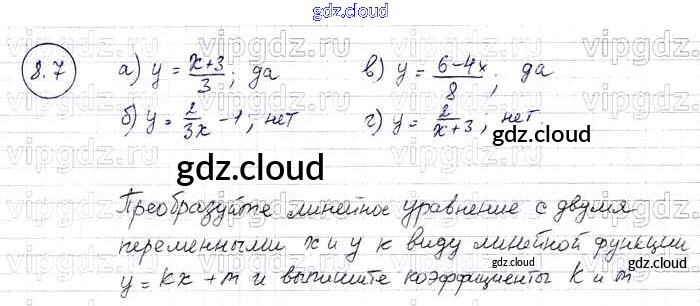 gdz.cloud
8.7 а) y = (x+3)/3; да в) y = (6-4x)/8; да
б) y = 2/(3x) - 1; нет г) y = 2/(x+3); нет.
gdz.cloud
gdz.cloud
Преобразуйте линейное уравнение с двумя
переменными x и y к виду линейной функции
y = kx + m и выпишите коэффициенты k и m
gdz.cloud